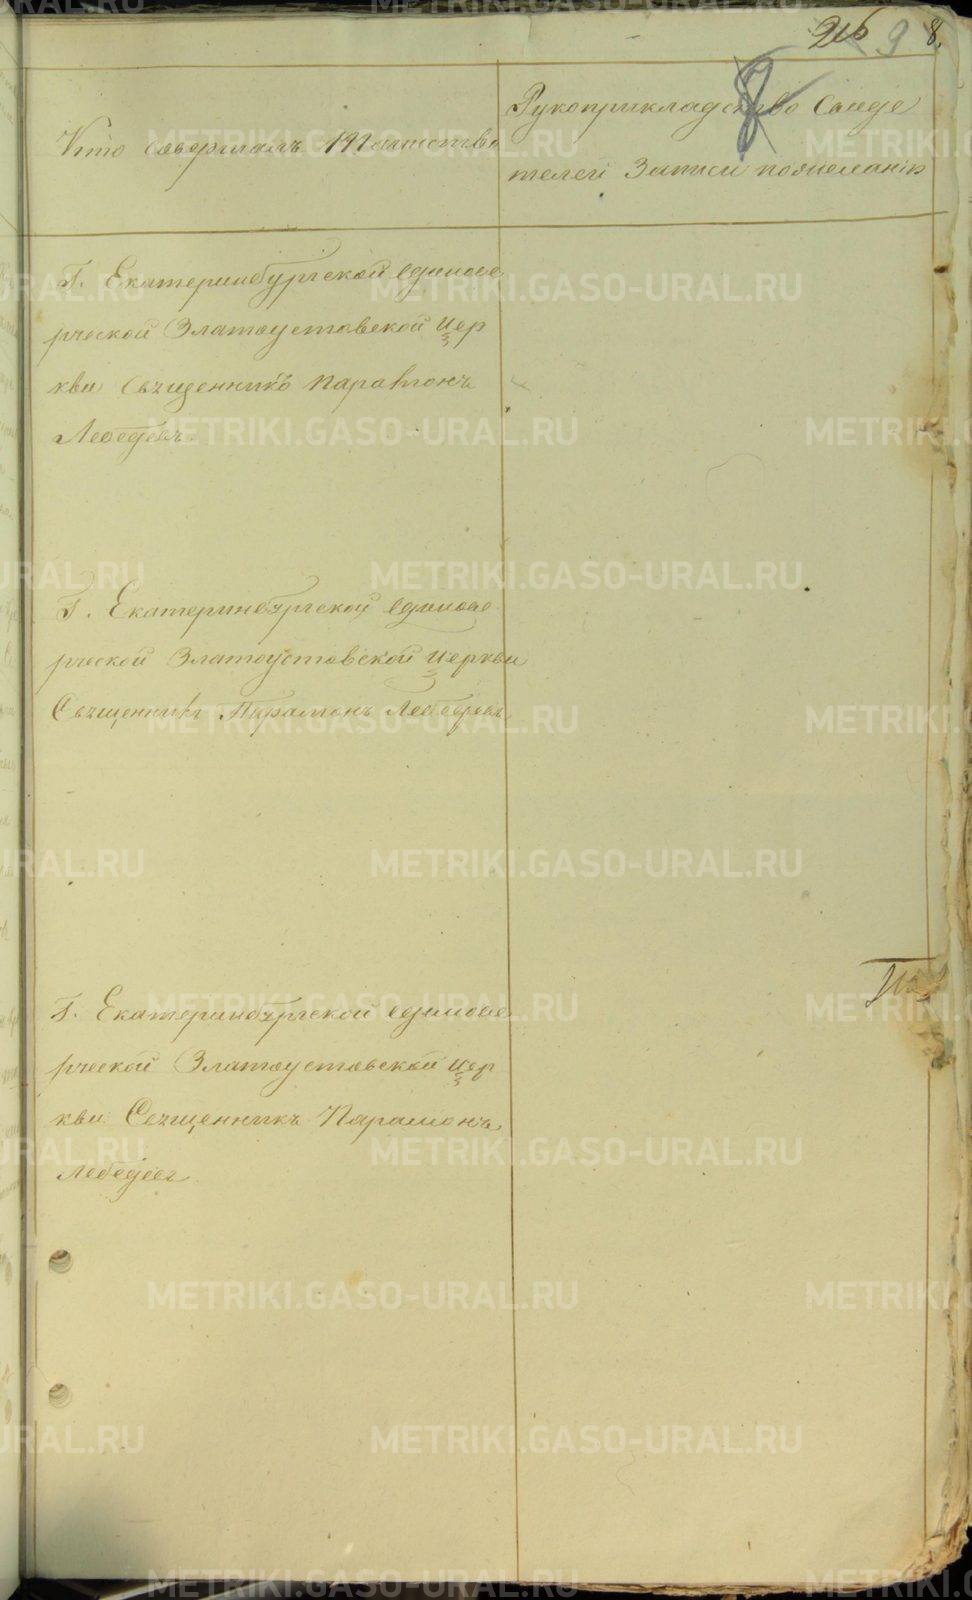 9 8.
8
Кто Совершалъ таинство
Рукоприкладство Свиде
телей Записи пожеланію
Г. Екатеринбургской Единове
рческой Златоустовской Цер
кви Священникъ Парамонъ
Лебедевъ
Г. Екатеринбургской Единове
рческой Златоустовской Церкви
Священникъ Парамонъ Лебедевъ
Г. Екатеринбургской Единове
рческой Златоустовской Цер
кви Священникъ Парамонъ
Лебедевъ
METRIKI.GASO-URAL.RU